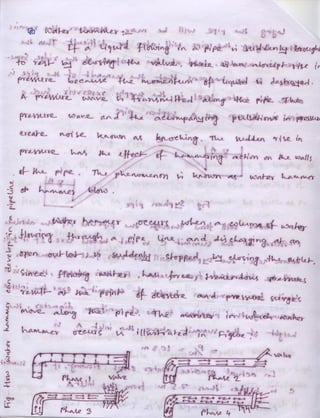 Water hammer :-
If a liquid flowing in a pipe is suddenly brought
to rest by closing the valve, there is an abrupt rise in
pressure because the momentum of liquid is destroyed.
A pressure wave is transmitted along the pipe. This
pressure wave and the accompanying pulsations in pressure
create noise known as knocking. The sudden rise in
pressure has the effect of hammering action on the walls
of the pipe. This phenomenon is known as water hammer
or hammer blow.
Water hammer occurs when a column of water
flowing through a pipe line and discharging at an
open outlet is suddenly stopped by closing the outlet.
Since flowing water has force, tremendous pressures
result at the point of closure and pressure surges
move along the pipe. The manner in which water
hammer occurs is illustrated in Figure
valve
Phase 1
valve
Phase 2
Phase 3
Phase 4
5
Fig How water hammer can develop in pipeline.